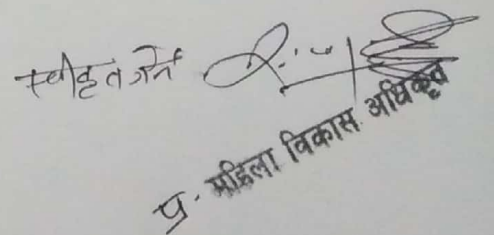 स्वीकृत गर्ने
प्र. महिला विकास अधिकृत